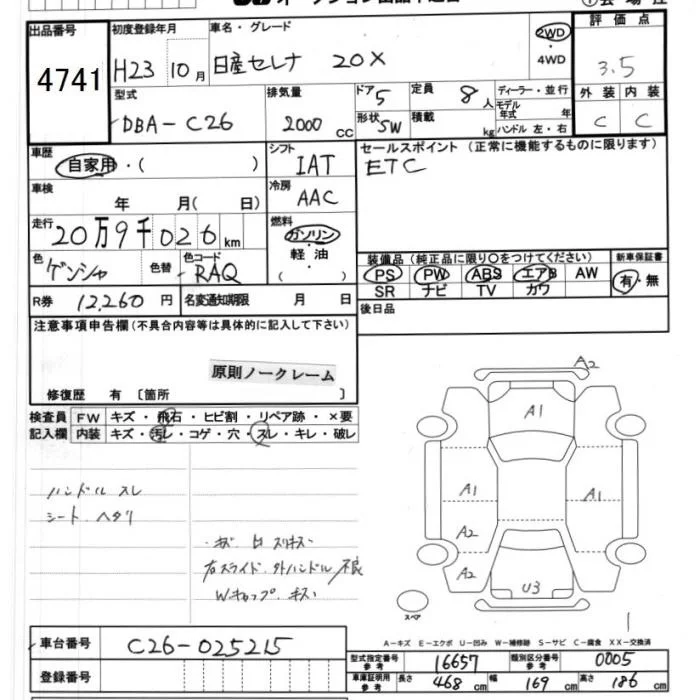 出品番号 初度登録年月 車名・グレード 評価点
4741 H23 10月 日産セレナ 20X 2WD・4WD 3.5
型式 排気量 ドア 5 定員 8人 ディーラー・並行 外装 内装
DBA-C26 2000cc 形状 SW 積載 kg モデル年式 年 ハンドル 左・右 C C
車歴 シフト セールスポイント (正常に機能するものに限ります)
自家用・( ) IAT ETC
車検 冷房
年 月( 日) AAC
走行 燃料
20万9千026km ガソリン・軽油・( )
色 色替 色コード 装備品(純正品に限り○をつけてください) 新車保証書
ゲンシャ RAQ PS PW ABS エアB AW 有・無
SR ナビ TV カワ
R券 12,260円 名変通知期限 月 日 後日品
注意事項申告欄(不具合内容等は具体的に記入して下さい)
原則ノークレーム
修復歴 有 〔箇所 〕
検査員 FW キズ・飛石・ヒビ割・リペア跡・×要
記入欄 内装 キズ・汚レ・コゲ・穴・スレ・キレ・破レ
ハンドル スレ
シート ヘタリ
右スライド 外ハンドル不良
Wキャップ キズ
A2
A1
A1 A1
A2
A2 U3
スペア
1
A-キズ E-エクボ U-凹み W-補修跡 S-サビ C-腐食 XX-交換済
車台番号 C26-025215
登録番号
型式指定番号 参考 16657 類別区分番号 参考 0005
車庫証明用 参考 長さ 468cm 幅 169cm 高さ 186cm